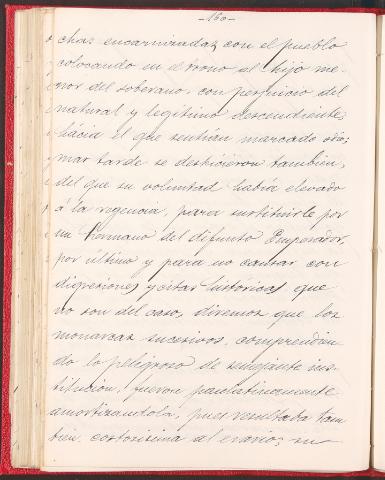 -160-
chas encarnizadas con el pueblo
colocando en el trono al hijo me-
nor del soberano, con perjuicio del
natural y legítimo descendiente,
hácia el que sentían marcado odio;
y mas tarde se deshicieron tambien,
del que su voluntad había elevado
á la regencia, para sustituirle por
un hermano del difunto Emperador,
por último y para no cansar con
digresiones y citas historicas que
no son del caso, diremos que los
monarcas sucesivos, comprendien
do lo peligroso de semejante ins-
titucion, fueron paulatinamente
amortizandola, pues resultaba tam
bien costosisima al erario; su